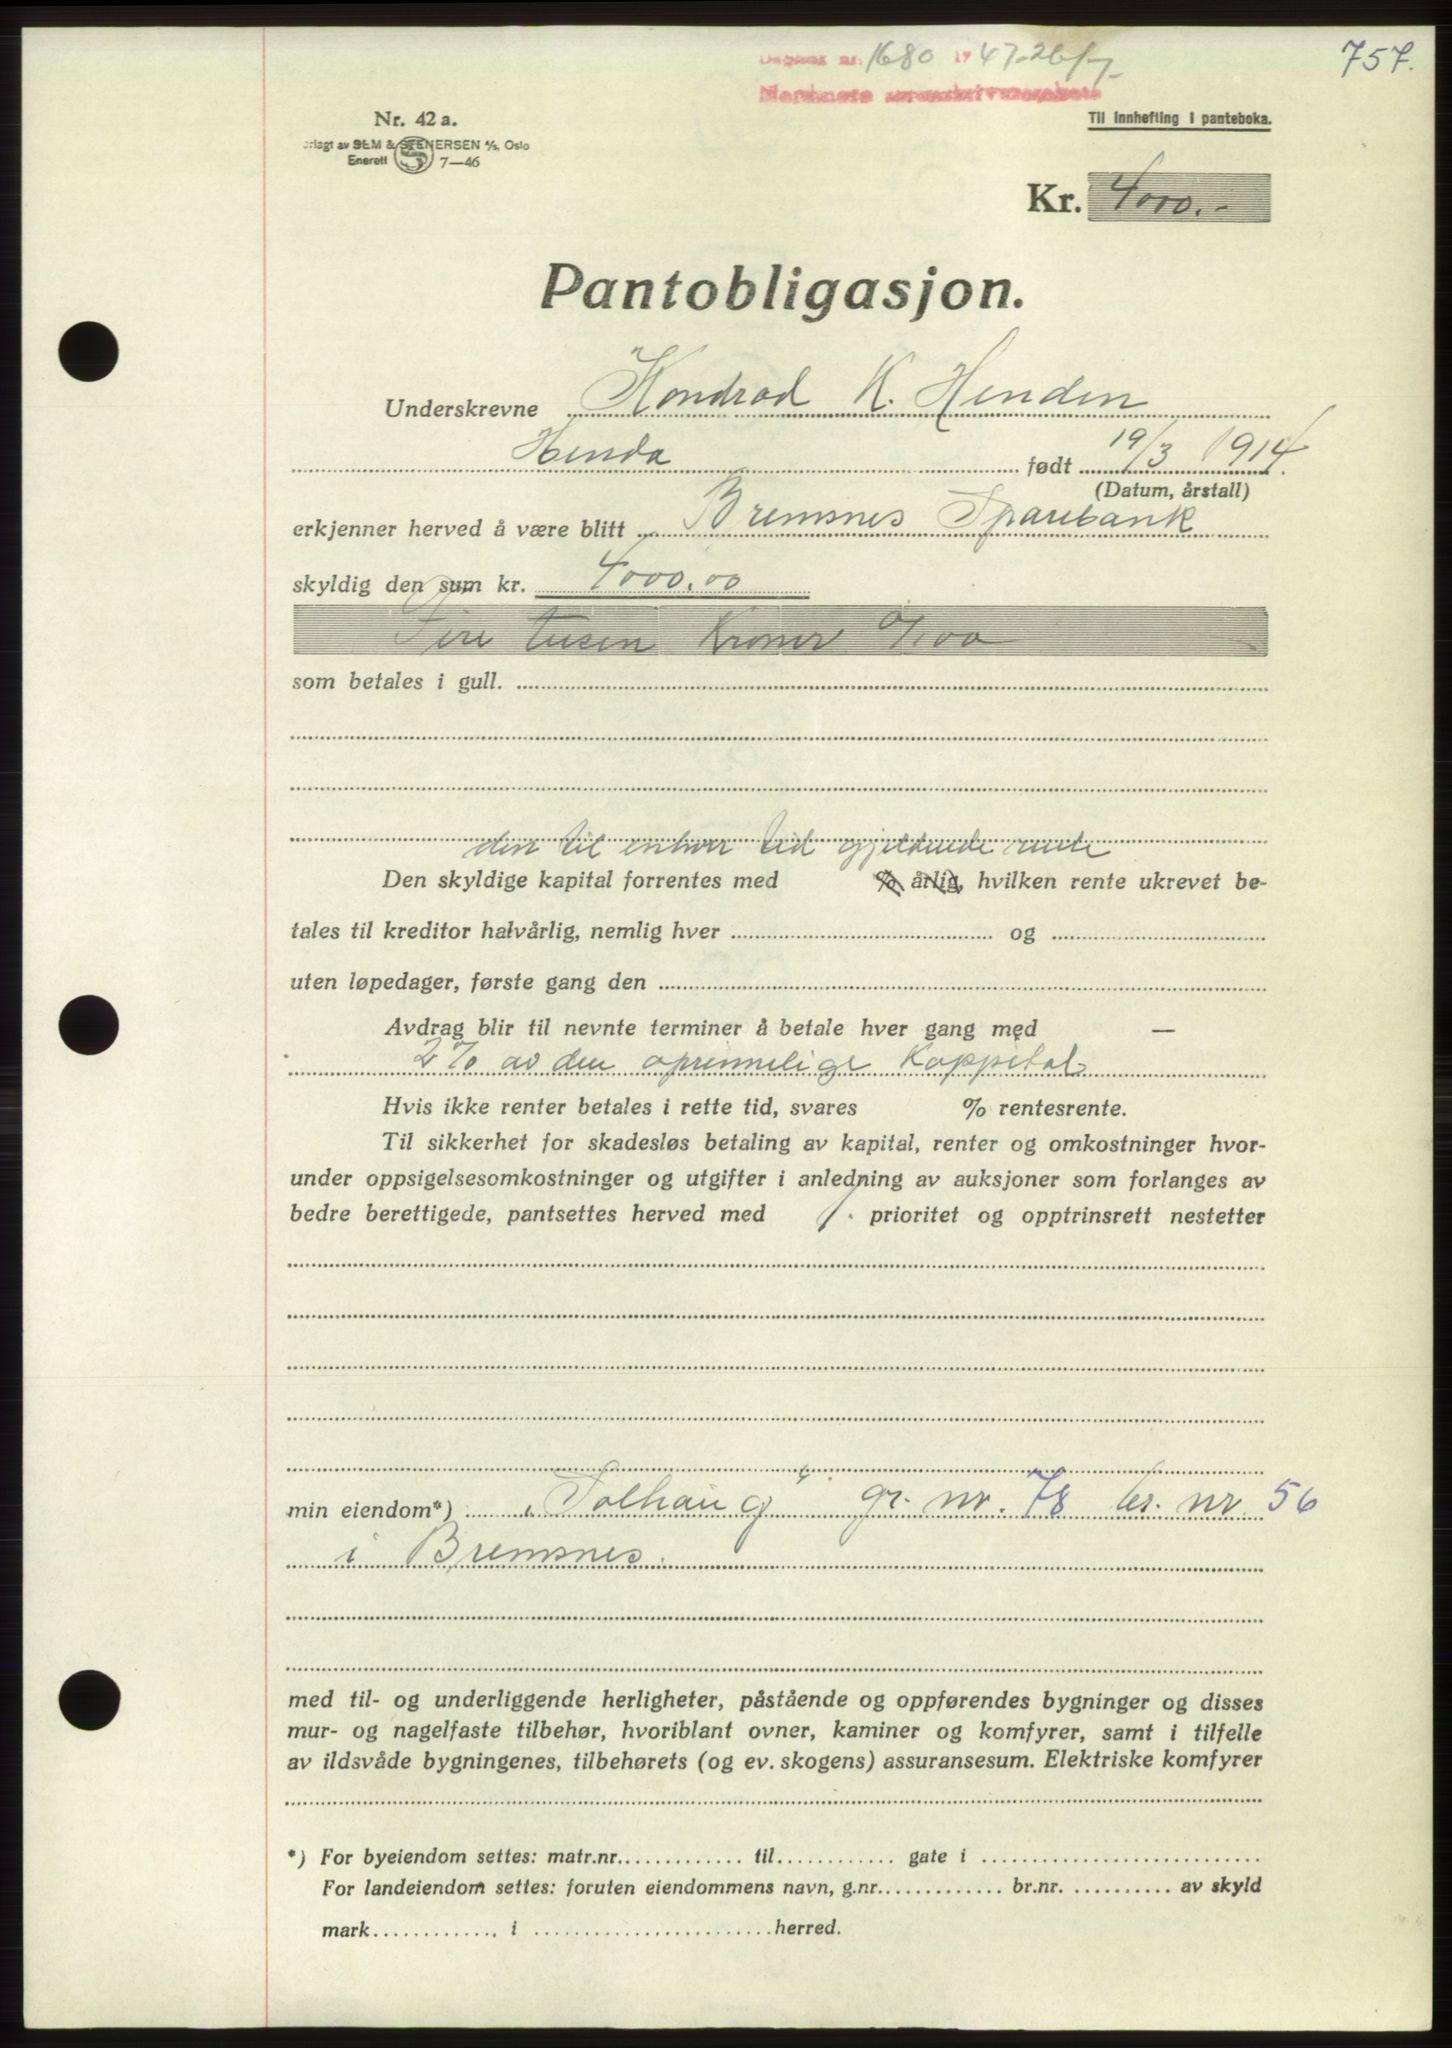 Dagbok nr. 1680 1947-26/7
Nordmøre sorenskriverembete
757.
Nr. 42 a.
Til innhefting i panteboka.
orlagt av SEM & STENERSEN A/S, Oslo
Enerett S 7—46
Kr. 4000.-
Pantobligasjon.
Underskrevne Kondrad K. Henden
Henda født 19/3 1914.
(Datum, årstall)
erkjenner herved å være blitt Bremsnes Sparebank
skyldig den sum kr. 4000.00
Fire tusen Kroner 0/100
som betales i gull.
den til enhver tid gjeldende rente
Den skyldige kapital forrentes med % årlig, hvilken rente ukrevet be-
tales til kreditor halvårlig, nemlig hver og
uten løpedager, første gang den
Avdrag blir til nevnte terminer å betale hver gang med —
2% av den oprinnelige Kappital
Hvis ikke renter betales i rette tid, svares % rentesrente.
Til sikkerhet for skadesløs betaling av kapital, renter og omkostninger hvor-
under oppsigelsesomkostninger og utgifter i anledning av auksjoner som forlanges av
bedre berettigede, pantsettes herved med 1. prioritet og opptrinsrett nestetter
min eiendom*) „Solhaug“ gr. nr. 78 br. nr 56
i Bremsnes.
med til- og underliggende herligheter, påstående og oppførendes bygninger og disses
mur- og nagelfaste tilbehør, hvoriblant ovner, kaminer og komfyrer, samt i tilfelle
av ildsvåde bygningenes, tilbehørets (og ev. skogens) assuransesum. Elektriske komfyrer
*) For byeiendom settes: matr.nr. til gate i
For landeiendom settes: foruten eiendommens navn, g.nr. br.nr. av skyld
mark , i herred.